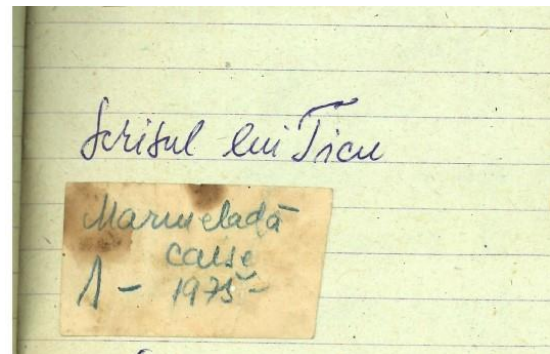 Scrisul lui Ticu
Marmeladă
caise
1 - 1975 -